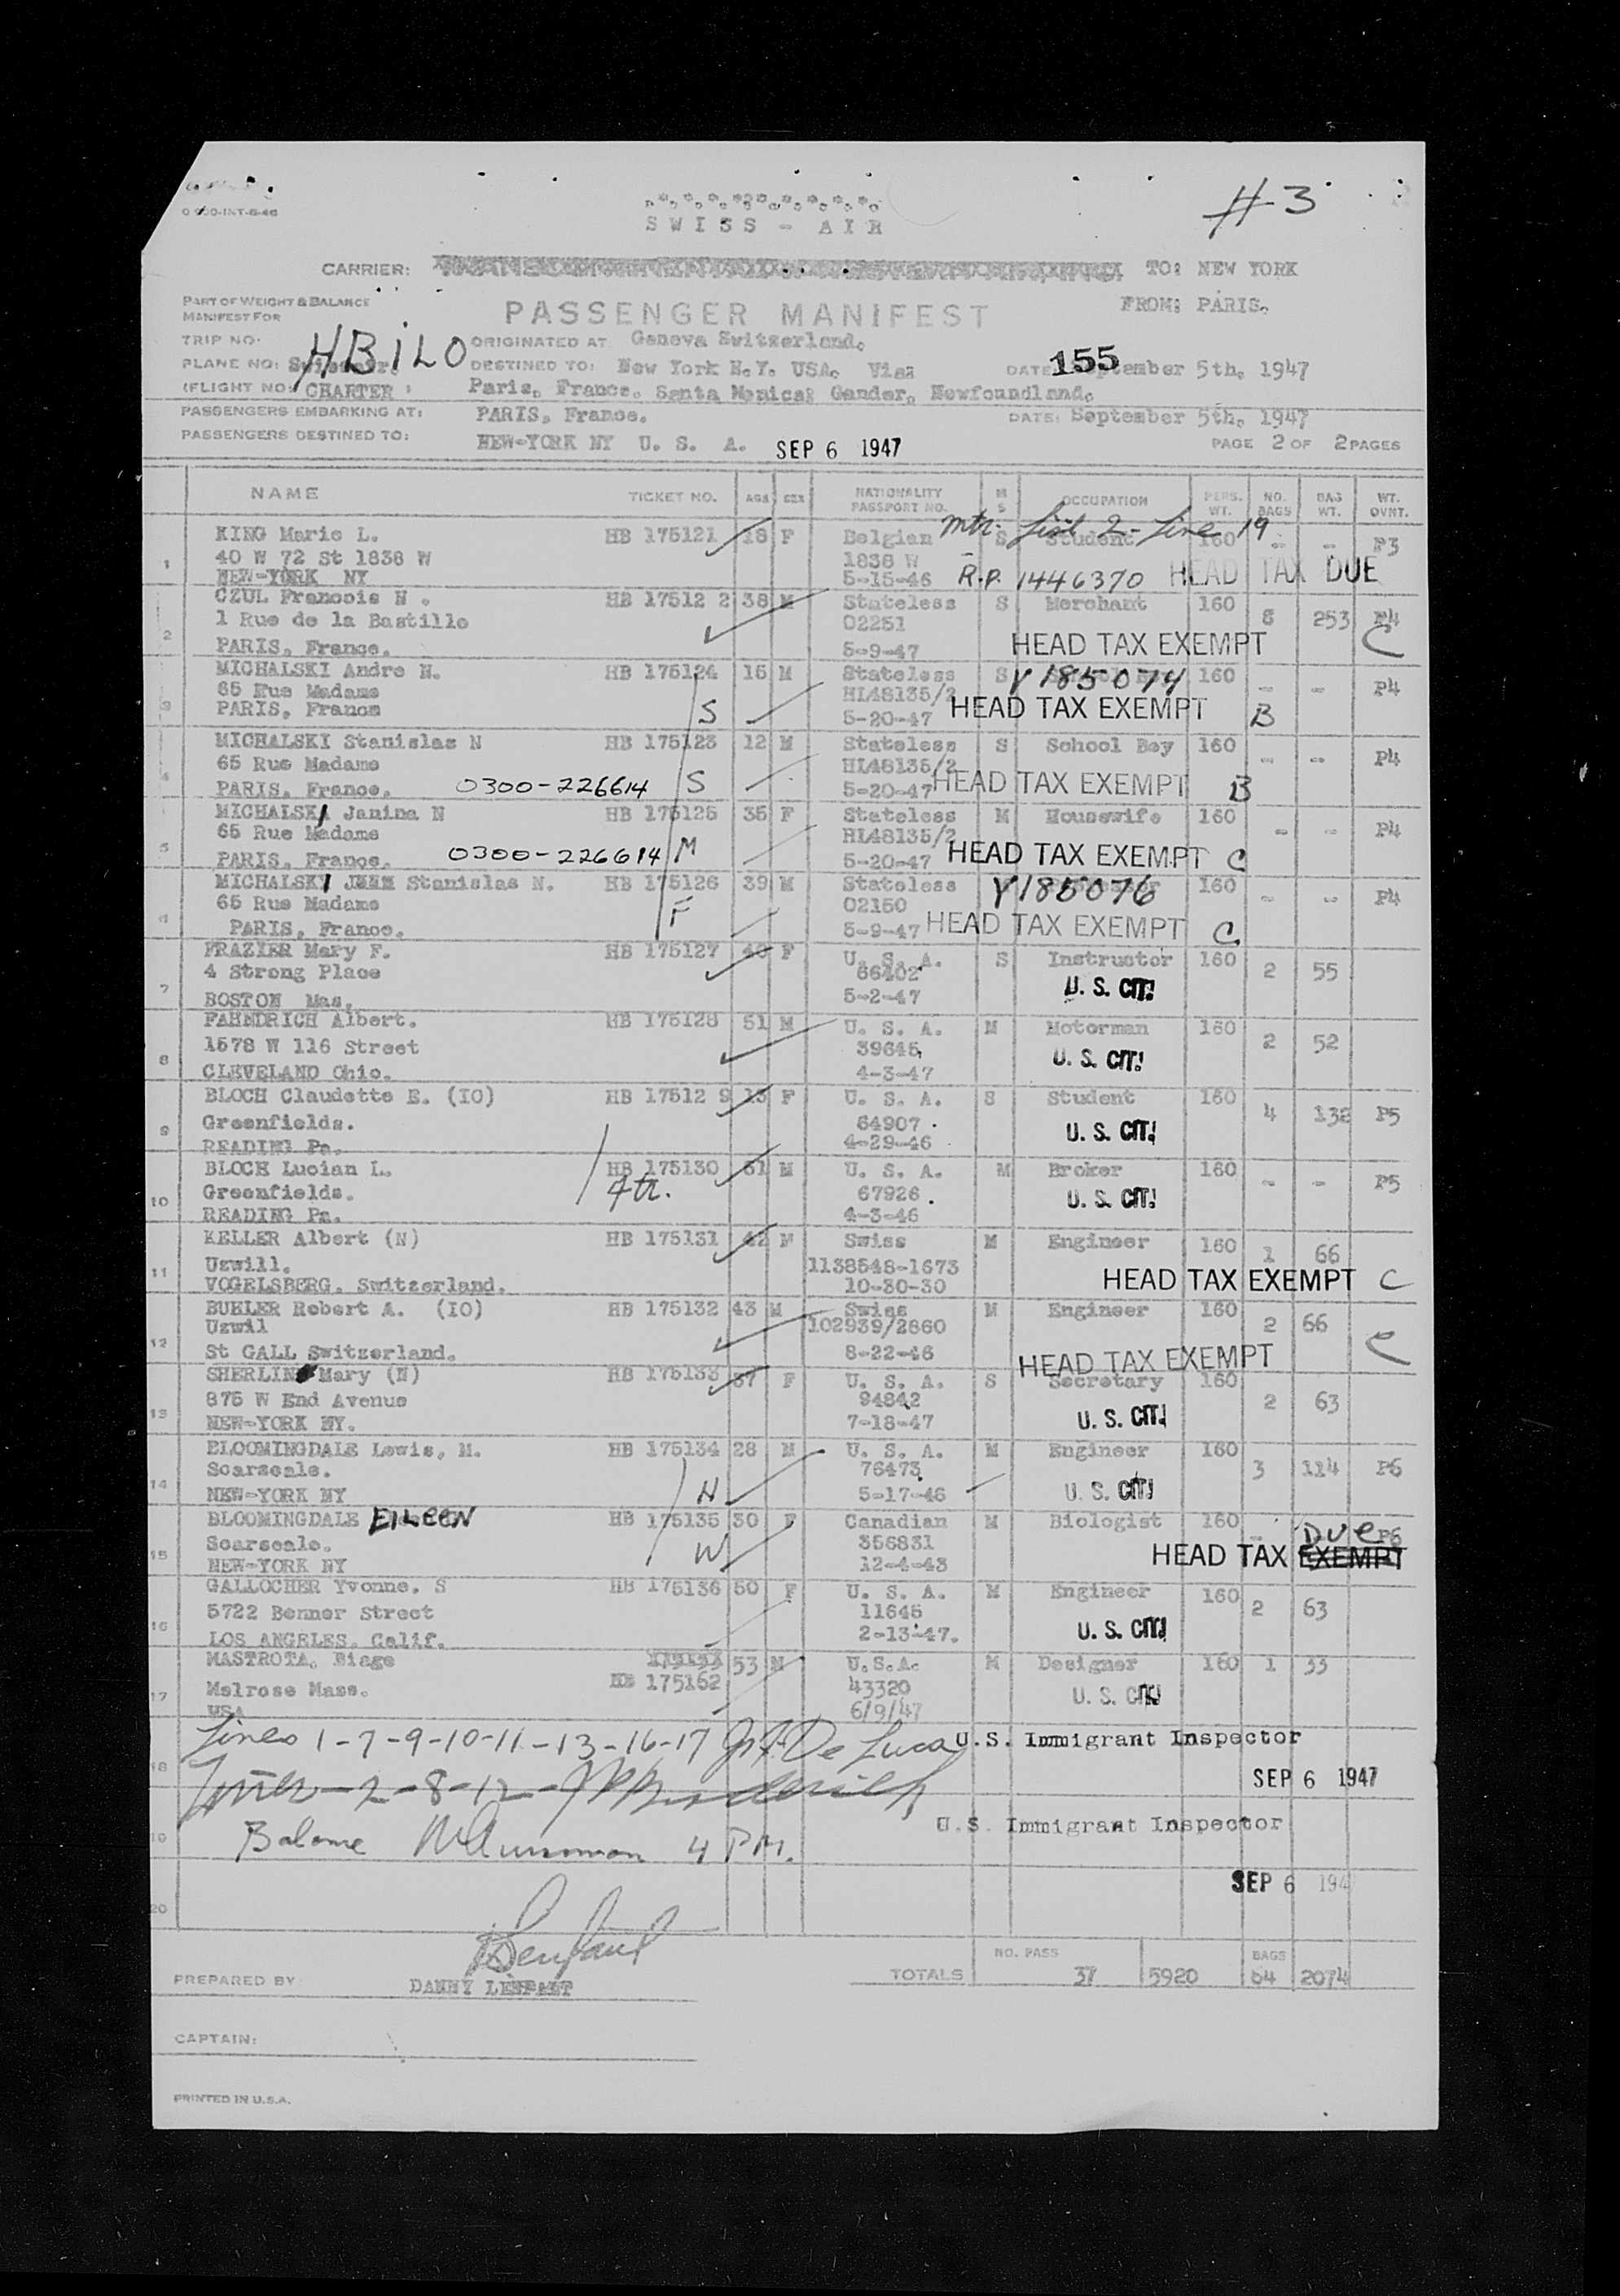 0 900-INT-8-46
# 3
SWISS - AIR
CARRIER:
TO: NEW YORK
PART OF WEIGHT & BALANCE
MANIFEST FOR
PASSENGER MANIFEST
FROM: PARIS.
TRIP NO.
HBiLO
ORIGINATED AT Geneva Switzerland.
PLANE NO: Swissair.
DESTINED TO: New York N.Y. USA. Via:
DATE 155 September 5th, 1947
(FLIGHT NO: CHARTER
Paris, France, Santa Monica; Gander, Newfoundland.
PASSENGERS EMBARKING AT: PARIS, France.
DATE: September 5th, 1947
PASSENGERS DESTINED TO: NEW-YORK NY U. S. A. SEP 6 1947
PAGE 2 OF 2 PAGES
NAME TICKET NO. AGE SEX NATIONALITY PASSPORT NO. M S OCCUPATION PERS. WT. NO. BAGS BAG WT. WT. OVNT.
mtr. List 2 - Line 19
1 KING Marie L. HB 175121 18 F Belgian S Student 160 - - P3
40 W 72 St 1838 W 1838 W
NEW-YORK NY 5-15-46 R.P. 1446370 HEAD TAX DUE
2 CZUL Francois N . HB 17512 2 38 M Stateless S Merchant 160 8 253 P4
1 Rue de la Bastille 02251
PARIS, France. 5-9-47 HEAD TAX EXEMPT C
3 MICHALSKI Andre N. HB 175124 15 M Stateless S V185074 160 - - P4
65 Rue Madame HL48135/2
PARIS, France S 5-20-47 HEAD TAX EXEMPT B
4 MICHALSKI Stanislas N HB 175123 12 M Stateless S School Boy 160 - - P4
65 Rue Madame HL48135/2
PARIS, France. 0300-226614 S 5-20-47 HEAD TAX EXEMPT B
5 MICHALSKA Janina N HB 175125 35 F Stateless M Housewife 160 - - P4
65 Rue Madame HL48135/2
PARIS, France. 0300-226614 M 5-20-47 HEAD TAX EXEMPT C
6 MICHALSKI Stanislas N. HB 175126 39 M Stateless V185076 160 - - P4
65 Rue Madame F 02150
PARIS, France. 5-9-47 HEAD TAX EXEMPT C
7 FRAZIER Mary F. HB 175127 40 F U. S. A. S Instructor 160 2 55
4 Strong Place 66402
BOSTON Mas. 5-2-47 U. S. CIT.
8 FAHNDRICH Albert. HB 175128 51 M U. S. A. M Motorman 160 2 52
1578 W 116 Street 39645
CLEVELAND Ohio. 4-3-47 U. S. CIT.
9 BLOCH Claudette E. (IO) HB 17512 9 13 F U. S. A. S Student 160 4 132 P5
Greenfields. 64907
READING Pa. 4-29-46 U. S. CIT.
10 BLOCH Lucian L. HB 175130 51 M U. S. A. M Broker 160 - - P5
Greenfields. ftr. 67926
READING Pa. 4-3-46 U. S. CIT.
11 KELLER Albert (N) HB 175131 42 M Swiss M Engineer 160 1 66
Uzwill. 1138548-1673
VOGELSBERG, Switzerland. 10-30-30 HEAD TAX EXEMPT C
12 BUHLER Robert A. (IO) HB 175132 43 M Swiss M Engineer 160 2 66
Uzwil 102939/2860
St GALL Switzerland. 8-22-46 HEAD TAX EXEMPT C
13 SHERLIN Mary (N) HB 175133 37 F U. S. A. S Secretary 160 2 63
875 W End Avenue 94842
NEW-YORK NY. 7-18-47 U. S. CIT.
14 BLOOMINGDALE Lewis, M. HB 175134 28 M U. S. A. M Engineer 160 3 114 P6
Scarscale. 76473
NEW-YORK NY H 5-17-46 U. S. CIT.
15 BLOOMINGDALE EILEEN HB 175135 30 F Canadian M Biologist 160 - DUE P6
Scarscale. W 356831
NEW-YORK NY 12-4-43 HEAD TAX EXEMPT
16 GALLOCHER Yvonne, S HB 175136 50 F U. S. A. M Engineer 160 2 63
5722 Benner Street 11645
LOS ANGELES, Calif. 2-13-47. U. S. CIT.
17 MASTROTA, Biago 53 M U.S.A. M Designer 160 1 33
Melrose Mass. HB 175162 43320
USA 6/9/47 U. S. CIT.
Lines 1-7-9-10-11-13-16-17 De Luca U.S. Immigrant Inspector
18 SEP 6 1947
Lines - 2-8-12-
U.S. Immigrant Inspector
19 Balance 4 PM.
SEP 6 194
20
NO. PASS BAGS
TOTALS 37 5920 64 2074
PREPARED BY DANNY
CAPTAIN:
PRINTED IN U.S.A.